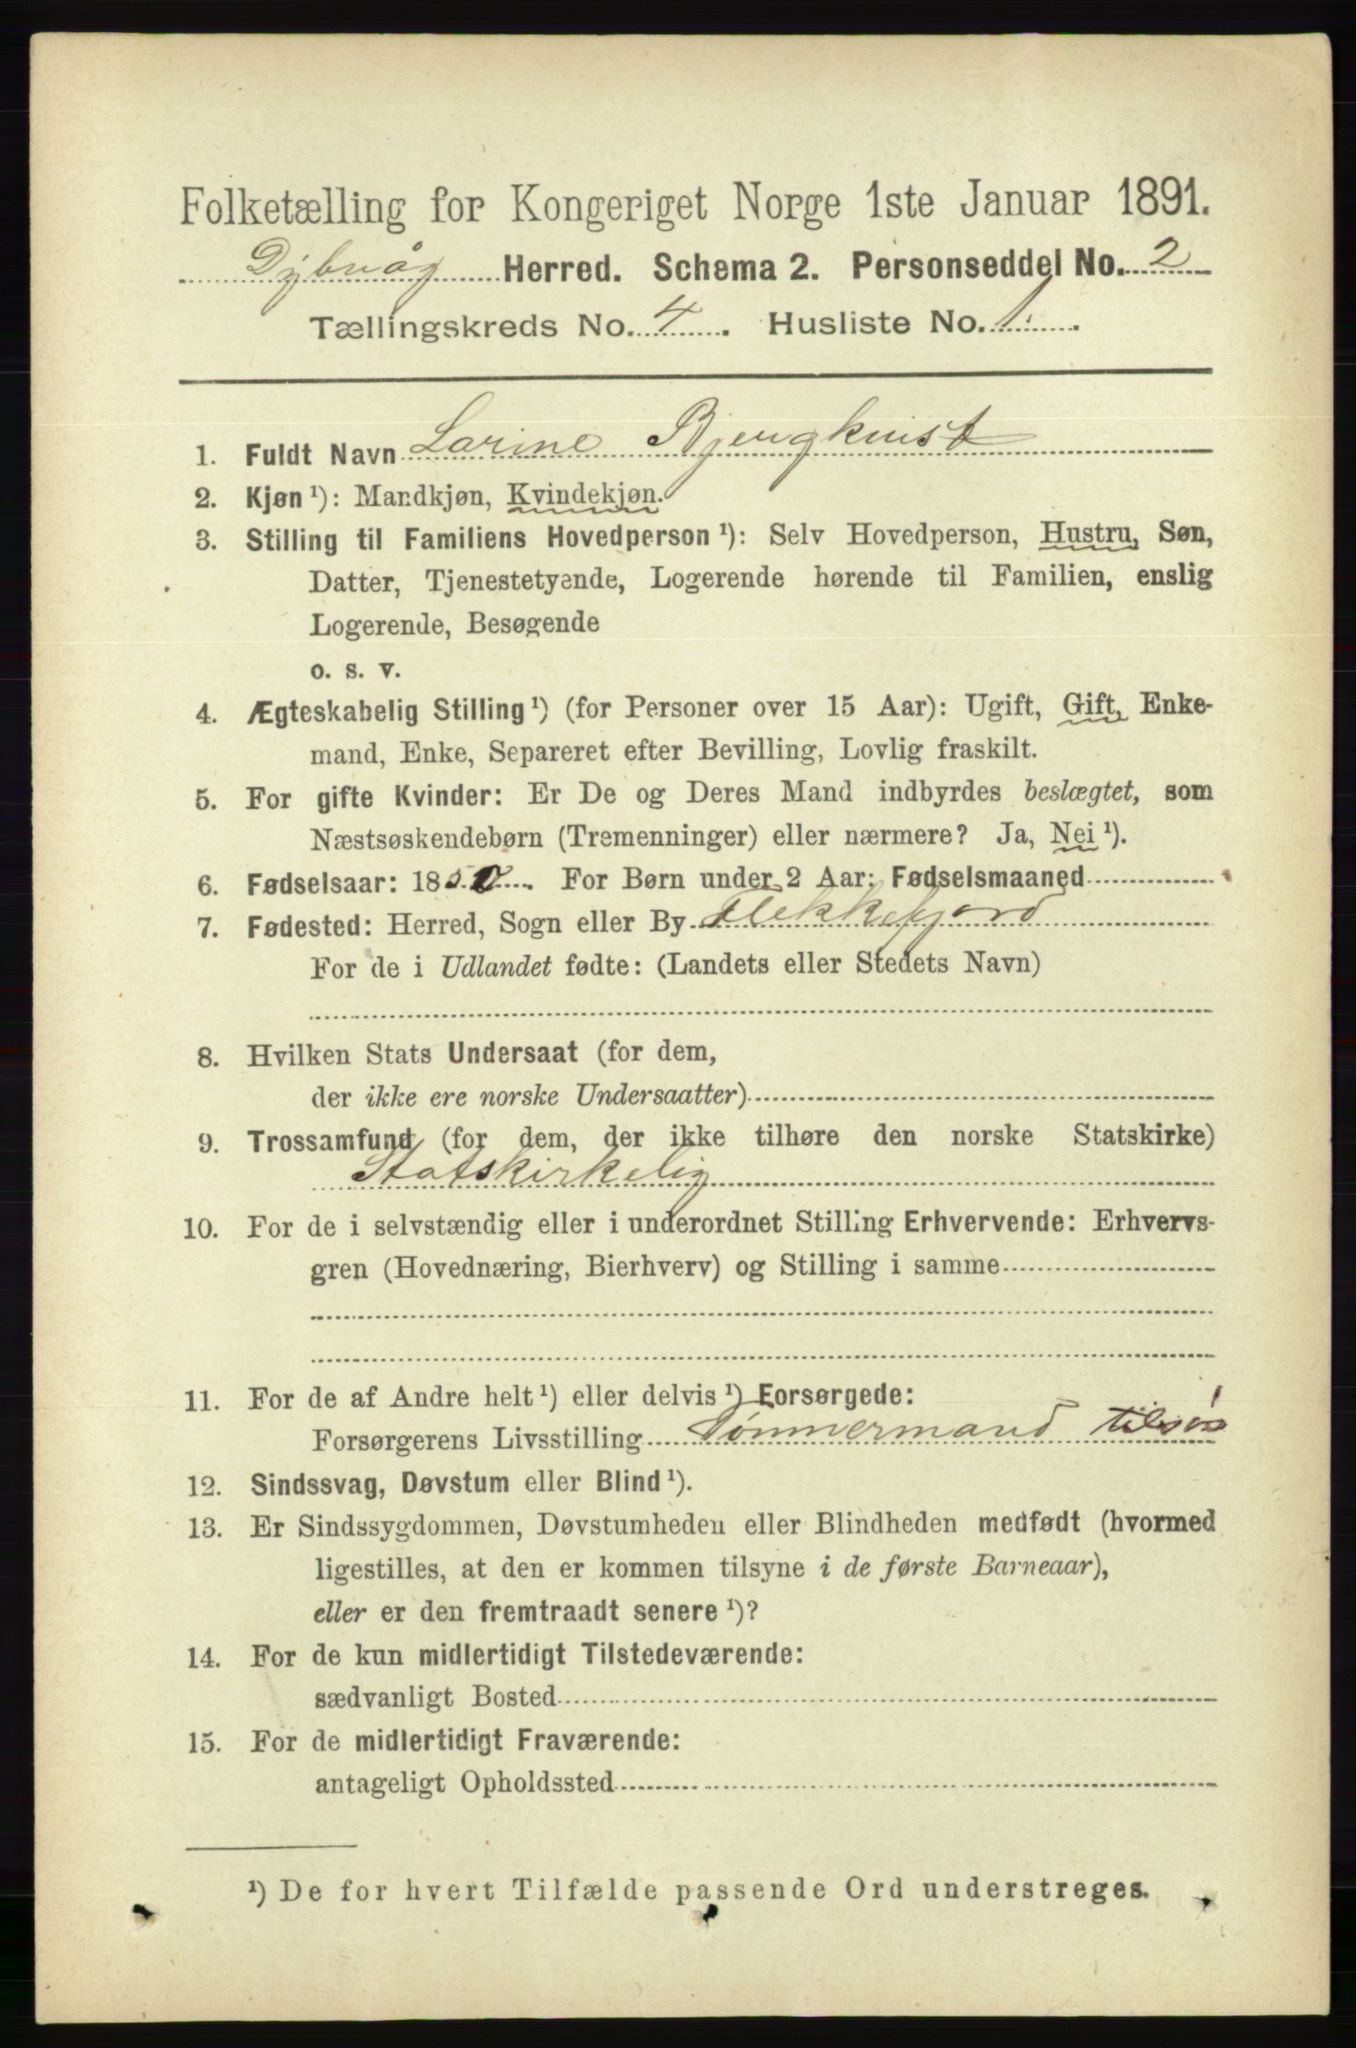 Folketælling for Kongeriget Norge 1ste Januar 1891.
Dybvåg Herred. Schema 2. Personseddel No. 2
Tællingskreds No. 4. Husliste No. 1.
1. Fuldt Navn Larine Bjengkvist
2. Kjøn ¹): Mandkjøn, Kvindekjøn.
3. Stilling til Familiens Hovedperson ¹): Selv Hovedperson, Hustru, Søn,
Datter, Tjenestetyende, Logerende hørende til Familien, enslig
Logerende, Besøgende
o. s. v.
4. Ægteskabelig Stilling ¹) (for Personer over 15 Aar): Ugift, Gift, Enke-
mand, Enke, Separeret efter Bevilling, Lovlig fraskilt.
5. For gifte Kvinder: Er De og Deres Mand indbyrdes beslægtet, som
Næstsøskendebørn (Tremenninger) eller nærmere? Ja, Nei ¹).
6. Fødselsaar: 1850. For Børn under 2 Aar: Fødselsmaaned
7. Fødested: Herred, Sogn eller By Flekkefjord
For de i Udlandet fødte: (Landets eller Stedets Navn)
8. Hvilken Stats Undersaat (for dem,
der ikke ere norske Undersaatter)
9. Trossamfund (for dem, der ikke tilhøre den norske Statskirke)
Statskirkelig
10. For de i selvstændig eller i underordnet Stilling Erhvervende: Erhvervs-
gren (Hovednæring, Bierhverv) og Stilling i samme
11. For de af Andre helt ¹) eller delvis ¹) Forsørgede:
Forsørgerens Livsstilling Tømmermand tilsøs
12. Sindssvag, Døvstum eller Blind ¹).
13. Er Sindssygdommen, Døvstumheden eller Blindheden medfødt (hvormed
ligestilles, at den er kommen tilsyne i de første Barneaar),
eller er den fremtraadt senere ¹)?
14. For de kun midlertidigt Tilstedeværende:
sædvanligt Bosted
15. For de midlertidigt Fraværende:
antageligt Opholdssted
¹) De for hvert Tilfælde passende Ord understreges.